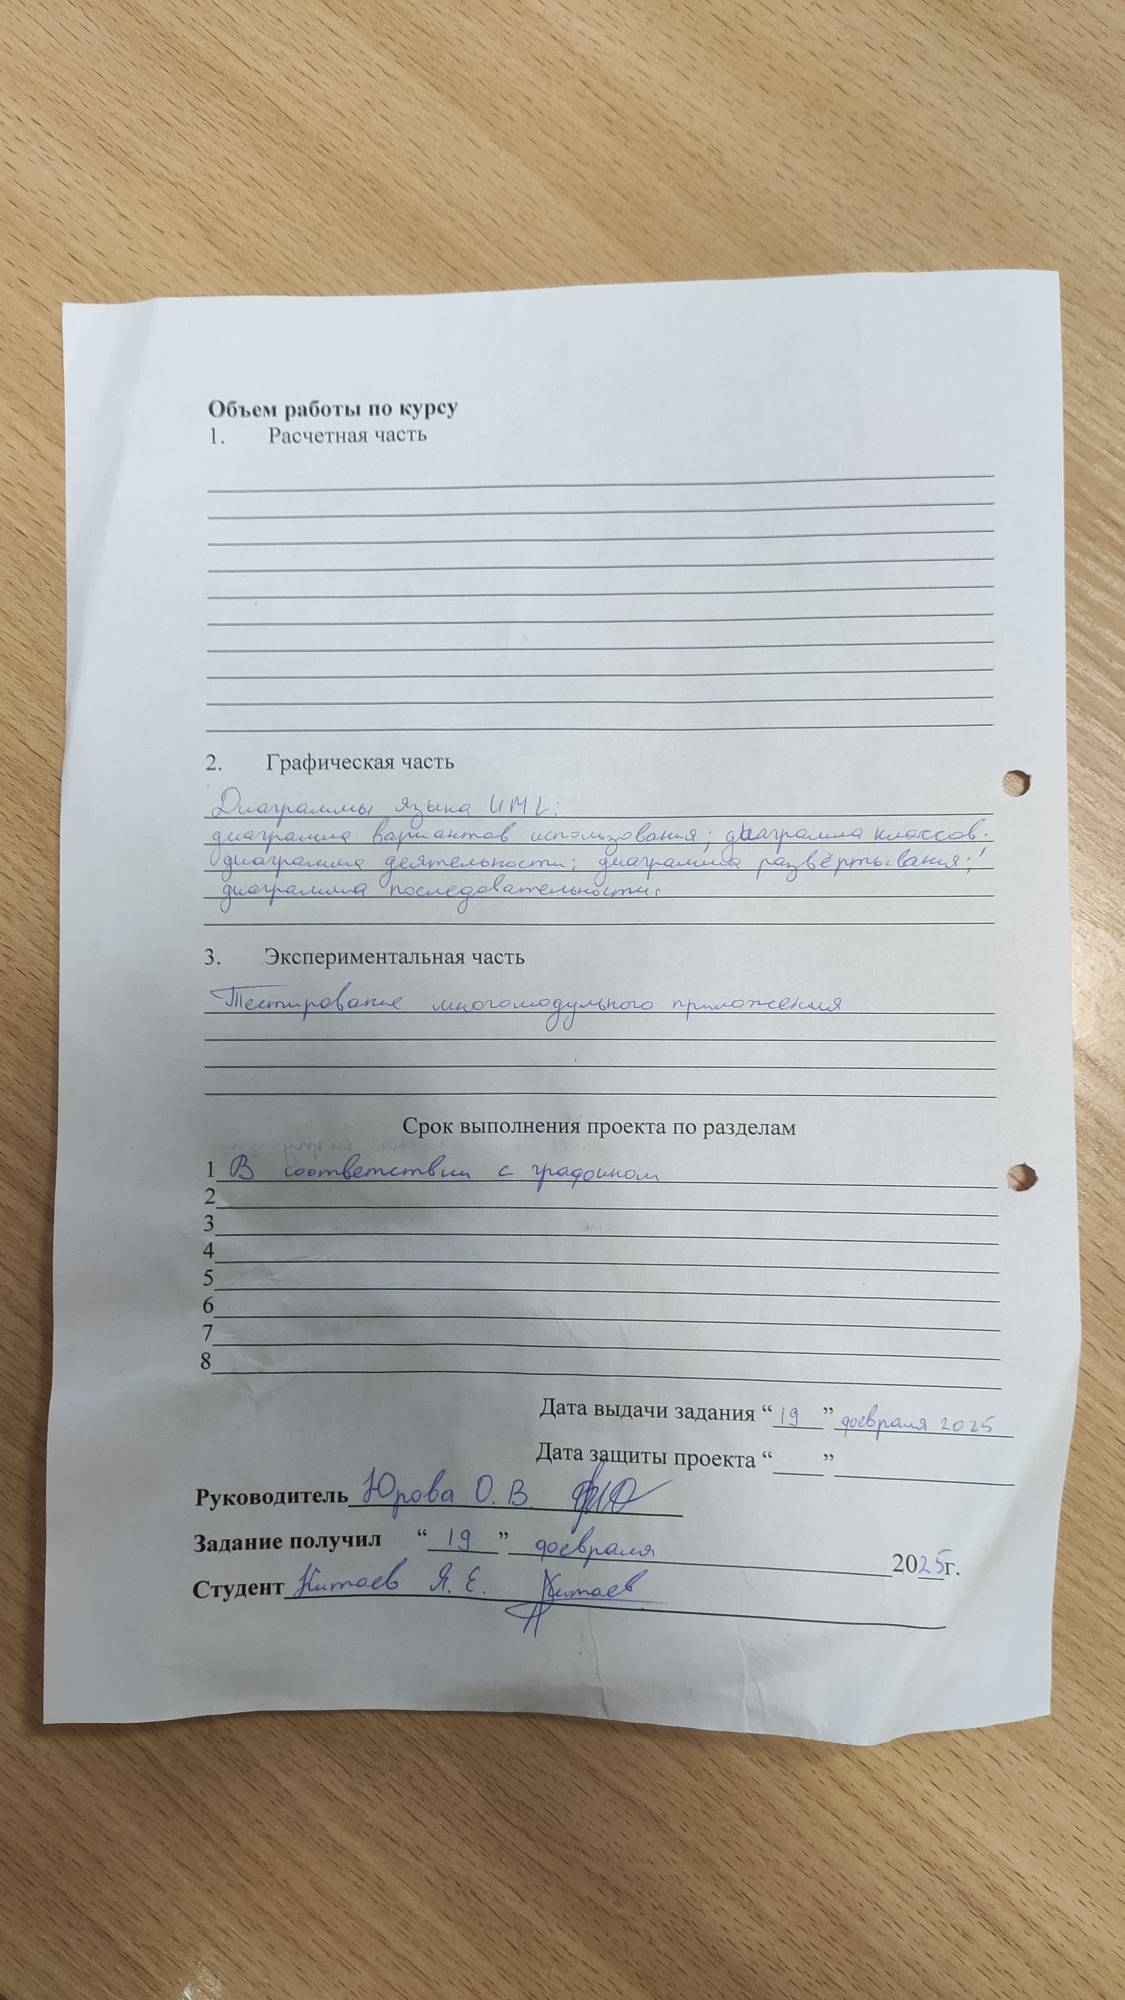 Объем работы по курсу
1. Расчетная часть
2. Графическая часть
Диаграммы языка UML:
диаграмма вариантов использования; диаграмма классов;
диаграмма деятельности; диаграмма развёртывания;
диаграмма последовательности.
3. Экспериментальная часть
Тестирование многомодульного приложения
Срок выполнения проекта по разделам
1 В соответствии с графиком
2
3
4
5
6
7
8
Дата выдачи задания “19” февраля 2025
Дата защиты проекта “____”
Руководитель Юрова О. В.
Задание получил “19” февраля 2025г.
Студент Китаев Я. Е. Китаев